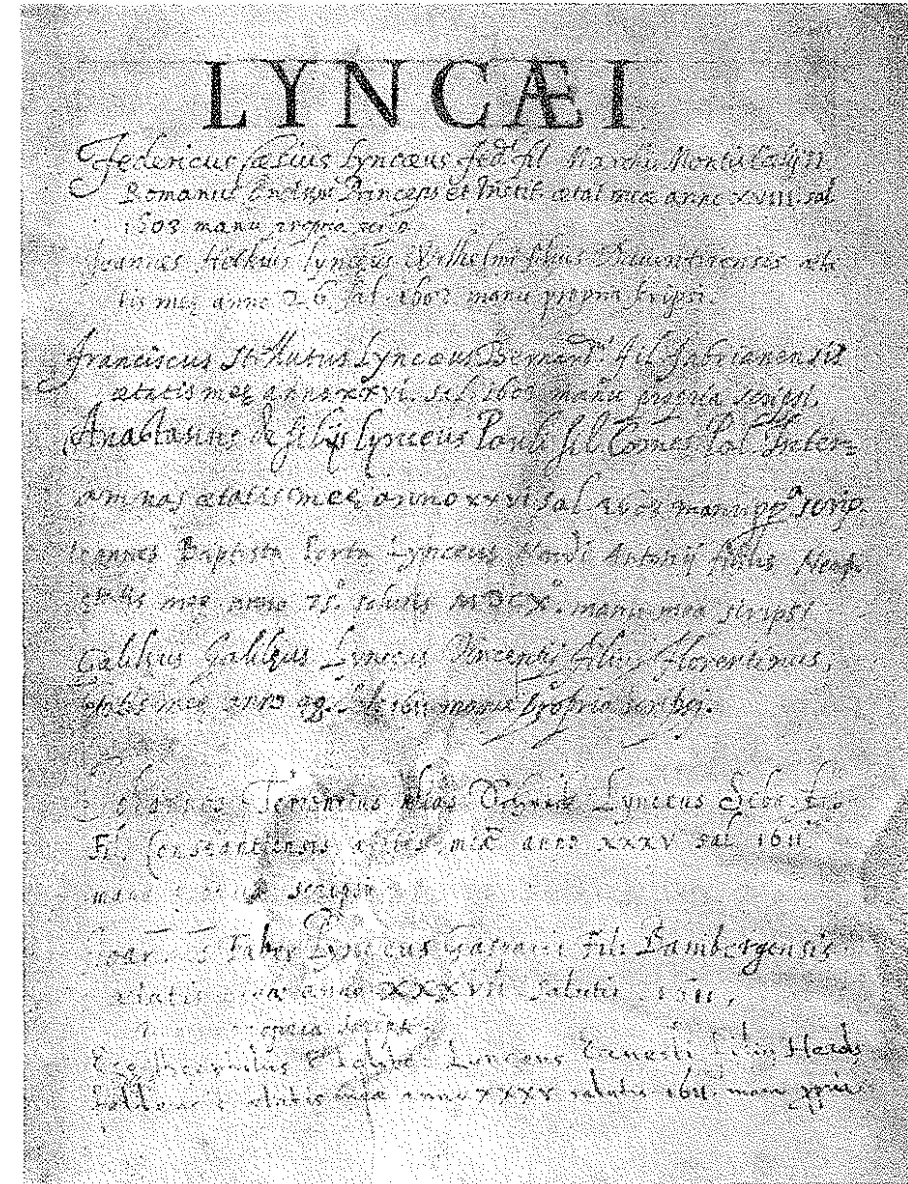 LYNCÆI
Federicus Cæsius Lynceus fed. fil. March. Montis Cælij II
Romanus Princeps et Instit. ætat. meæ anno XVIII. sal
1603 manu propria scripsi
Joannes Heckius Lynceus Wilhelmi filius Daventriensis æta
tis meę anno 26 sal. 1603 manu propria scripsi.
Franciscus Stellutus Lyncæus Bernard. fil. fabrianensis
ætatis meę anno xxvi. sal. 1603 manu propria scripsi.
Anastasius de filijs Lynceus Pauli fil. Comes Pal. Inter=
amnas ætatis meę anno xxvi sal 1603 manu pp.a scrip.
Ioannes Baptista Porta Lynceus Nardi Antonij filius Neap.
ętatis meę anno 75.° salutis MDCX.° manu mea scripsi
Galileus Galileus Lynceus Vincentij filius Florentinus,
ętatis meę anno 48. Sal. 1611 manu propria scripsi.
Terrentius Lynceus Seba.
Fil. Constantiensis ætatis meæ anno XXXV sal 1611
manu propria scripsi
Joannes Faber Lynceus Gasparis Fil. Bambergensis
ætatis meæ anno XXXVII salutis 1611,
manu propria scripsi.
Ego Theophilus Lynceus Ernesti filius
ætatis meæ anno XXXV salutis 1611. manu ppria